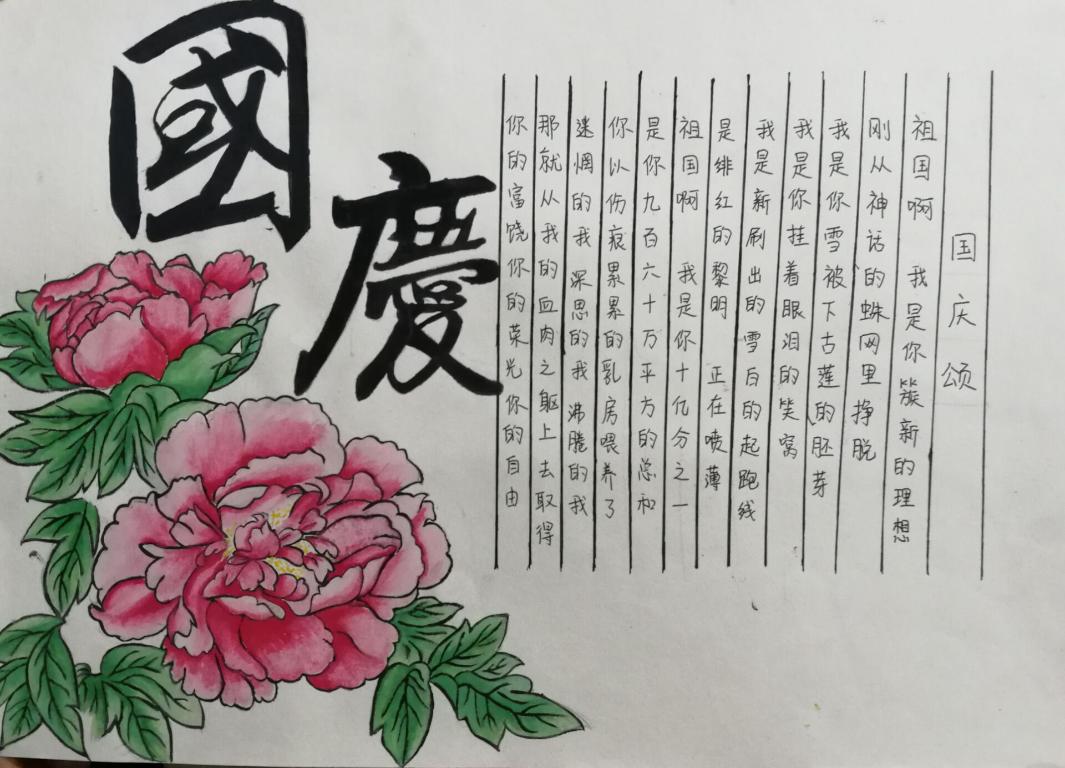 國慶
国庆颂
祖国啊 我是你簇新的理想
刚从神话的蛛网里挣脱
我是你雪被下古莲的胚芽
我是你挂着眼泪的笑窝
我是新刷出的雪白的起跑线
是绯红的黎明 正在喷薄
祖国啊 我是你十亿分之一
是你九百六十万平方的总和
你以伤痕累累的乳房喂养了
迷惘的我 深思的我 沸腾的我
那就从我的血肉之躯上去取得
你的富饶你的荣光你的自由